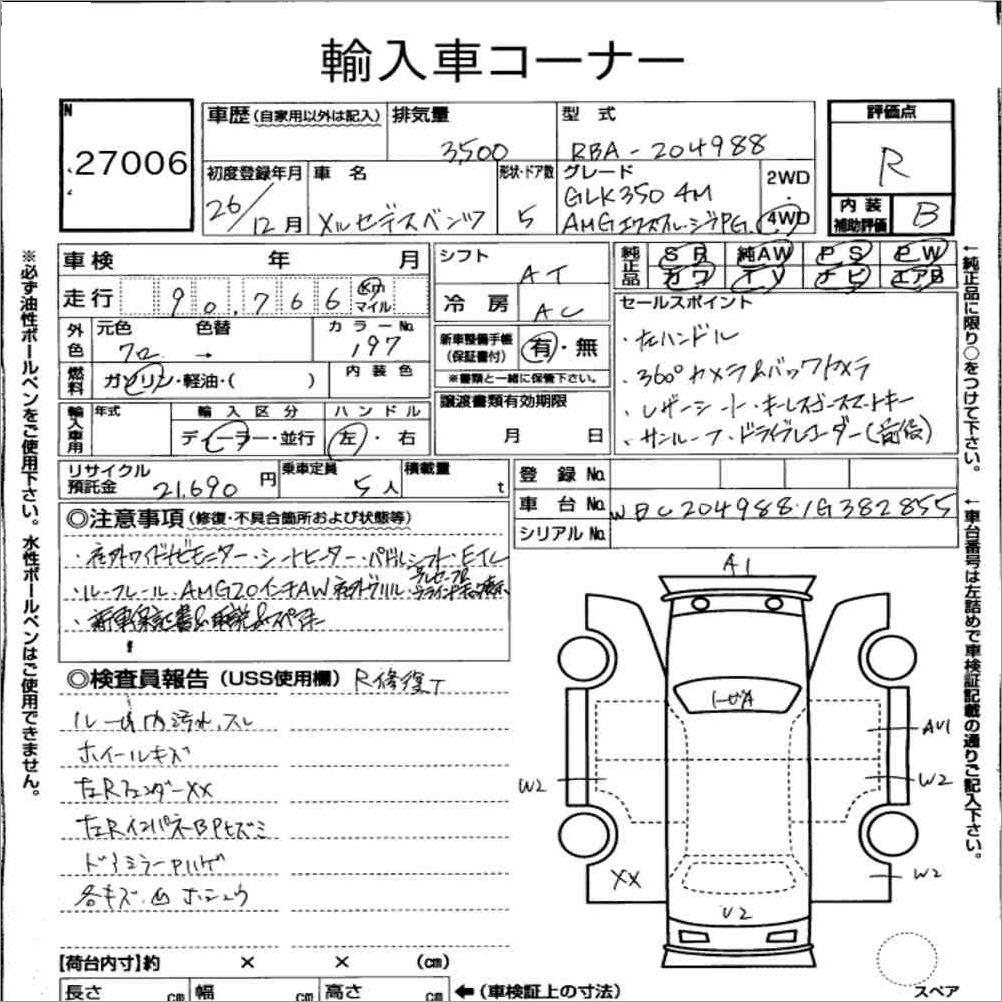 輸入車コーナー
N
27006
車歴 (自家用以外は記入)
排気量
3,500
型式
RBA-204988
評価点
R
初度登録年月
26/12月
車名
メルセデスベンツ
形状・ドア数
5
グレード
GLK350 4M
AMGエクスクルーシブPG
2WD
4WD
内装
補助評価
B
車検 年 月
走行 90,766 km マイル
シフト
AT
純正品
SR 純AW PS PW
カワ TV ナビ エアB
外色
元色 クロ
色替 →
カラーNo.
197
冷房
AC
燃料
ガソリン・軽油・( )
内装色
新車整備手帳
(保証書付)
有・無
※書類と一緒に保管下さい。
セールスポイント
・左ハンドル
・360°カメラ&バックカメラ
・レザーシート・キーレスゴースマートキー
・サンルーフ・ドライブレコーダー(前後)
輸入車用
年式
輸入区分
ディーラー・並行
ハンドル
左・右
譲渡書類有効期限
月 日
リサイクル
預託金
21,690円
乗車定員
5人
積載量
t
登録No.
車台No.
WDC204988・1G382855
シリアルNo.
◎注意事項 (修復・不具合箇所および状態等)
・社外ワイドナビモニター・シートヒーター・パドルシフト・ETC
・ルーフレール・AMG20インチAW 社外グリル
・新車保証書&取説&スペアキー
◎検査員報告 (USS使用欄) R修復T
ルーム内汚れ、スレ
ホイールキズ
左RフェンダーXX
左RインパネBPヒズミ
ドアミラーPハゲ
各キズ、凹 ホシュウ
A1
AU1
W2
W2
W2
XX
U2
【荷台内寸】約 × × (cm)
長さ cm
幅 cm
高さ cm
←(車検証上の寸法)
スペア
※必ず油性ボールペンをご使用下さい。水性ボールペンはご使用できません。
←純正品に限り○をつけて下さい。
←車台番号は左詰めで車検証記載の通りご記入下さい。